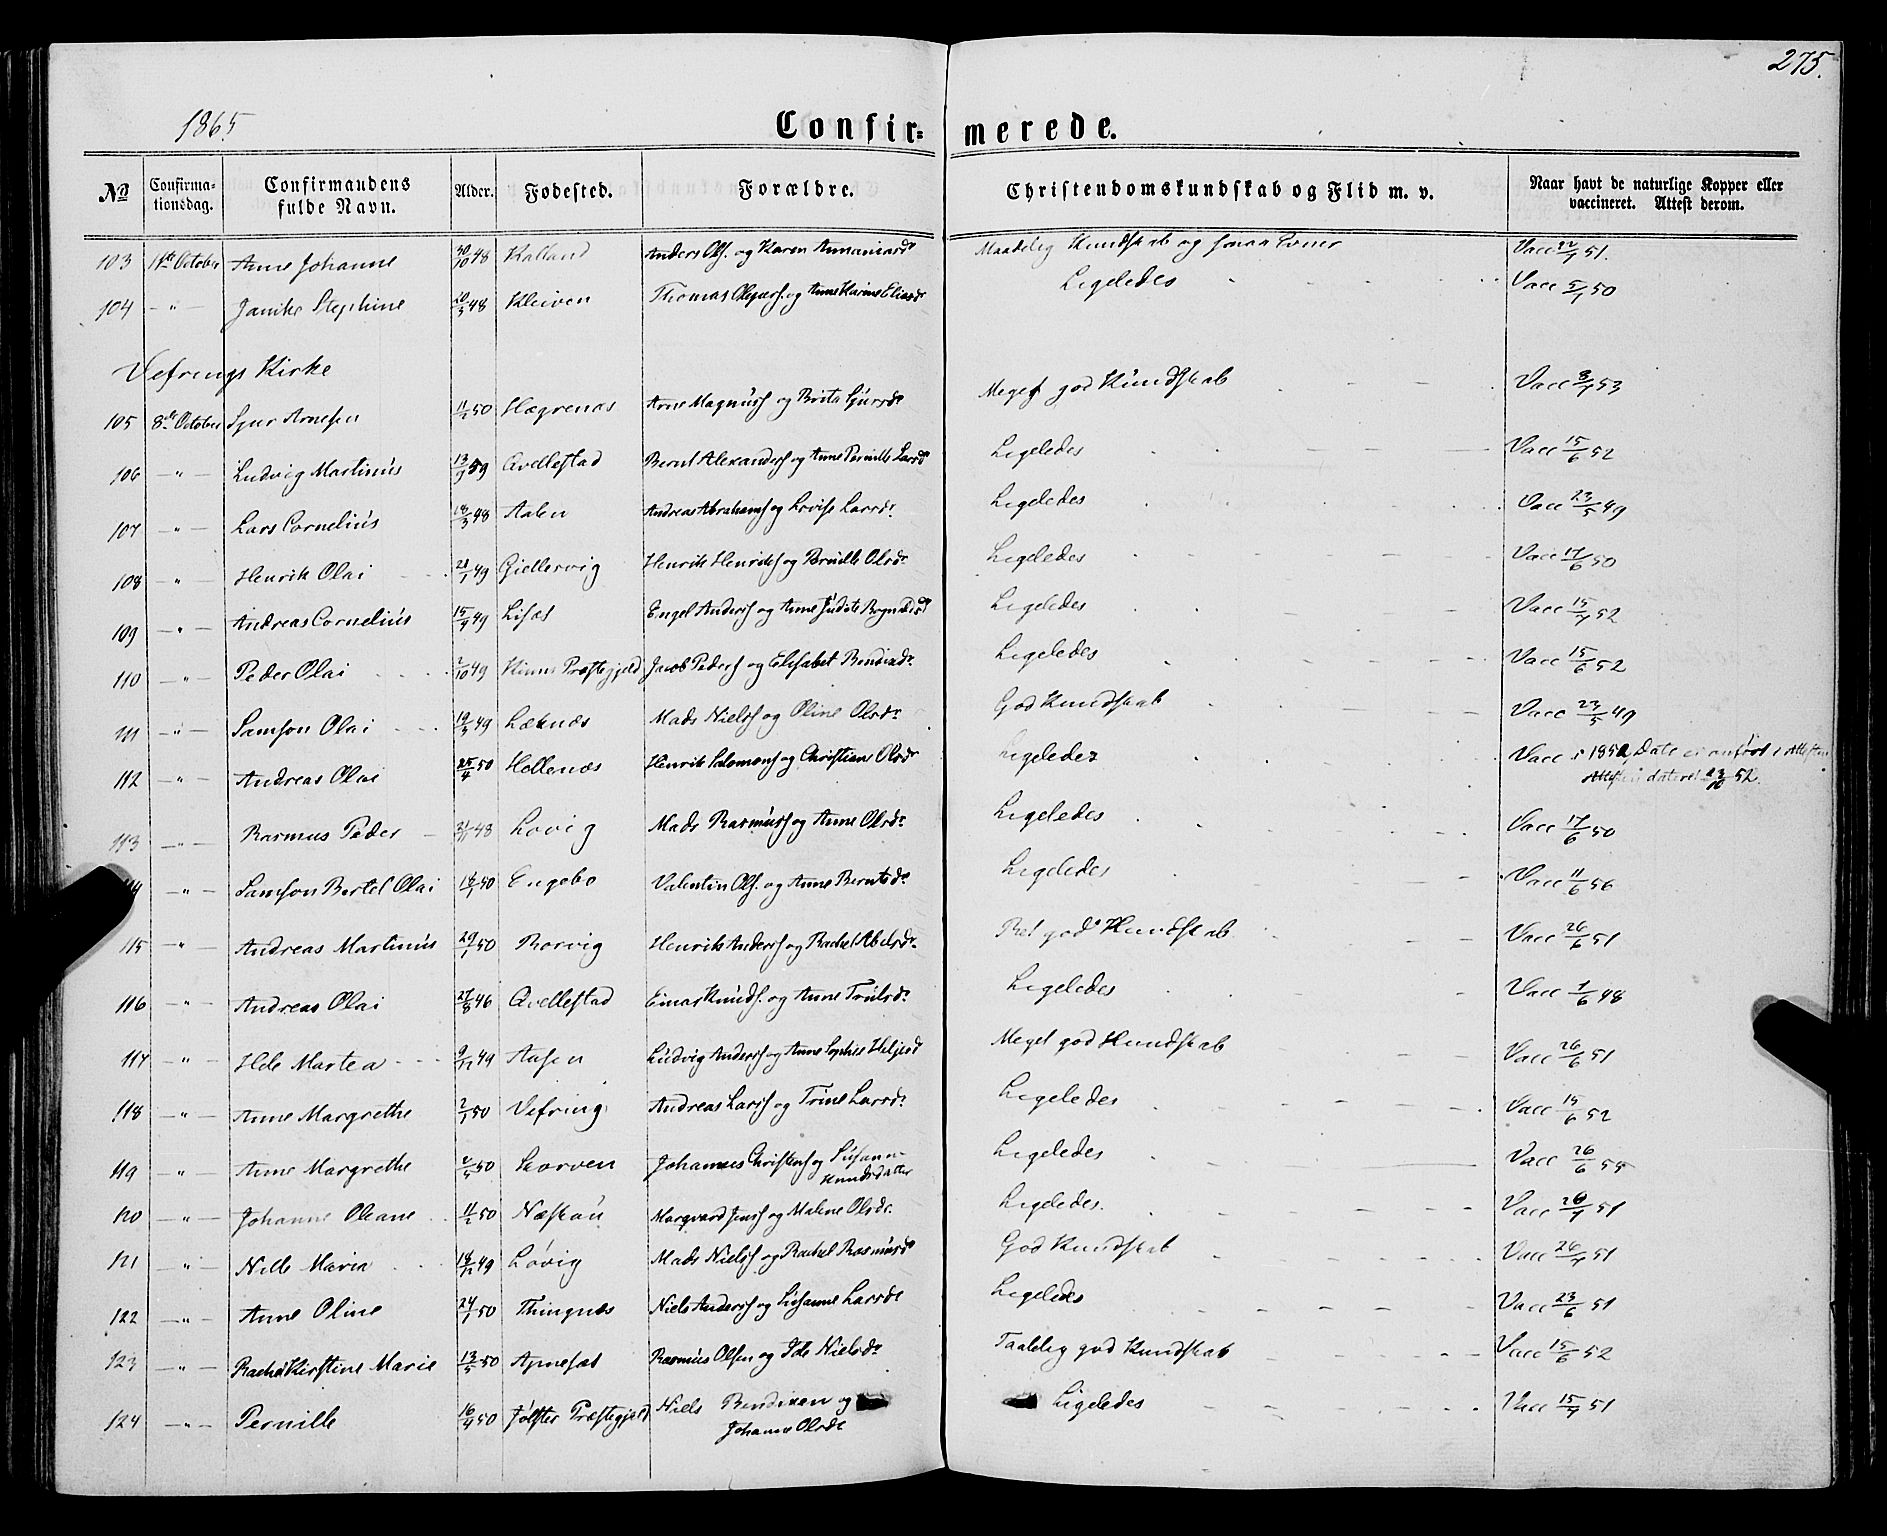 275.
1865
Confir= merede.
№ Confirma-tionsdag. Confirmandens fulde Navn. Alder. Fødested. Forældre. Christendomskundskab og Flid m. v. Naar havt de naturlige Kopper eller vaccineret. Attest derom.
103 1ste October Anne Johanne 48 Kalland Anders Ols. og Karen Maadelig Kundskab og Vacc 51.
104 — " — Janike Stephine 48 Kleiven Thomas og Anne Karine Eliasdr Ligeledes Vacc 5/7 50
Vefrings Kirke
105 8de October Sjur Arnesen 11/2 50 Hegrenæs Arne Magnuss og Brita Sjursdr Meget god Kundskab Vacc 8/7 53
106 — " — Ludvig Martinus 13/9 59 Qvellestad Bernt Alexanders og Anne Pernille Larsdr Ligeledes Vacc 15/6 52
107 — " — Lars Cornelius 18/3 48 Aalen Andreas Abrahams og Lovise Larsdr Ligeledes Vacc 23/5 49
108 — " — Henrik Olai 21/1 49 Gjellervig Henrik Henriks og Pernille Olsdr Ligeledes Vacc 17/6 50
109 — " — Andreas Cornelius 15/4 49 Liset Engel Anders og Anne Judite Ligeledes Vacc 15/7 52
110 — " — Peder Olai 2/10 49 Kinns Præstegjeld Jacob Peders og Elisabet Bendixdr Ligeledes Vacc 15/6 52
111 — " — Samson Olai 19/3 49 Leknæs Mads Niels og Oline Olsdr God Kundskab Vacc 23/5 49
112 — " — Andreas Olai 25/4 50 Hellenæs Henrik Salomons og Christiane Olsdr Ligeledes Vacc i 1852, Date ei anført i Attesten
Attesten dateret 23/10 52.
113 — " — Rasmus Peder 21/11 48 Løvig Mads Rasmuss og Anne Olsdr Ligeledes Vacc 17/6 50
114 — " — Samson Bertel Olai 18/1 50 Engebø Valentin Ols. og Anne Berntsdr Ligeledes Vacc 11/6 56
115 — " — Andreas Martinus 29/1 50 Rørvig Henrik Anders og Rachel Abelsdr Ret god Kundskab Vacc 26/6 51
116 — " — Andreas Olai 27/8 46 Qvellestad Einar Knuds. og Anne Trulsdr Ligeledes Vacc 1/6 48
117 — " — Ilde Martea 9/12 49 Aasen Ludvig Anders og Anne Sophie Meget god Kundskab Vacc 26/6 51
118 — " — Anne Margrethe 2/1 50 Vefring Andreas Lars og Trine Larsdr Ligeledes Vacc 15/6 52
119 — " — Anne Margrethe 2/5 50 Skorven Johannes Christens og Susanne
Knudsdatter Ligeledes Vacc 26/6 55
120 — " — Johanne Oleane 11/2 50 Næstau Marqvard Jens og Malene Olsdr. Ligeledes. Vacc 26/7 51
121 — " — Nille Maria 18/12 49 Løvig Mads Niels og Rachel Rasmusdr God Kundskab Vacc 26/7 51
122 — " — Anne Oline 24/1 50 Thingnæs Niels Anders og Susanne Larsdr Ligeledes Vacc 23/6 51
123 — " — Rachel Kirstine Marie 13/5 50 Apneset Rasmus Olsen og Ide Nielsdr Taalelig god Kundskab Vacc 15/6 52
124 — " — Pernille 16/4 50 Jølster Præstegjeld Niels Bendixen og
Johanne Olsdr Ligeledes Vacc 15/7 51